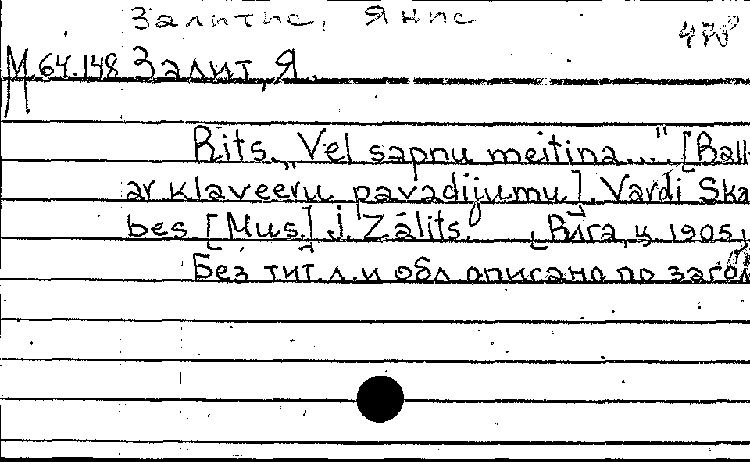 Залитис, Янис
478
М 64.148 Залит, Я.
Rits. „Vel sapnu meitina...." [Ball
ar klaveeru pavadijumu]. Vardi Ska
bes [Mus.] J. Zālits. [Rīga, ц 1905]
Без тит. л. и обл. описано по загол